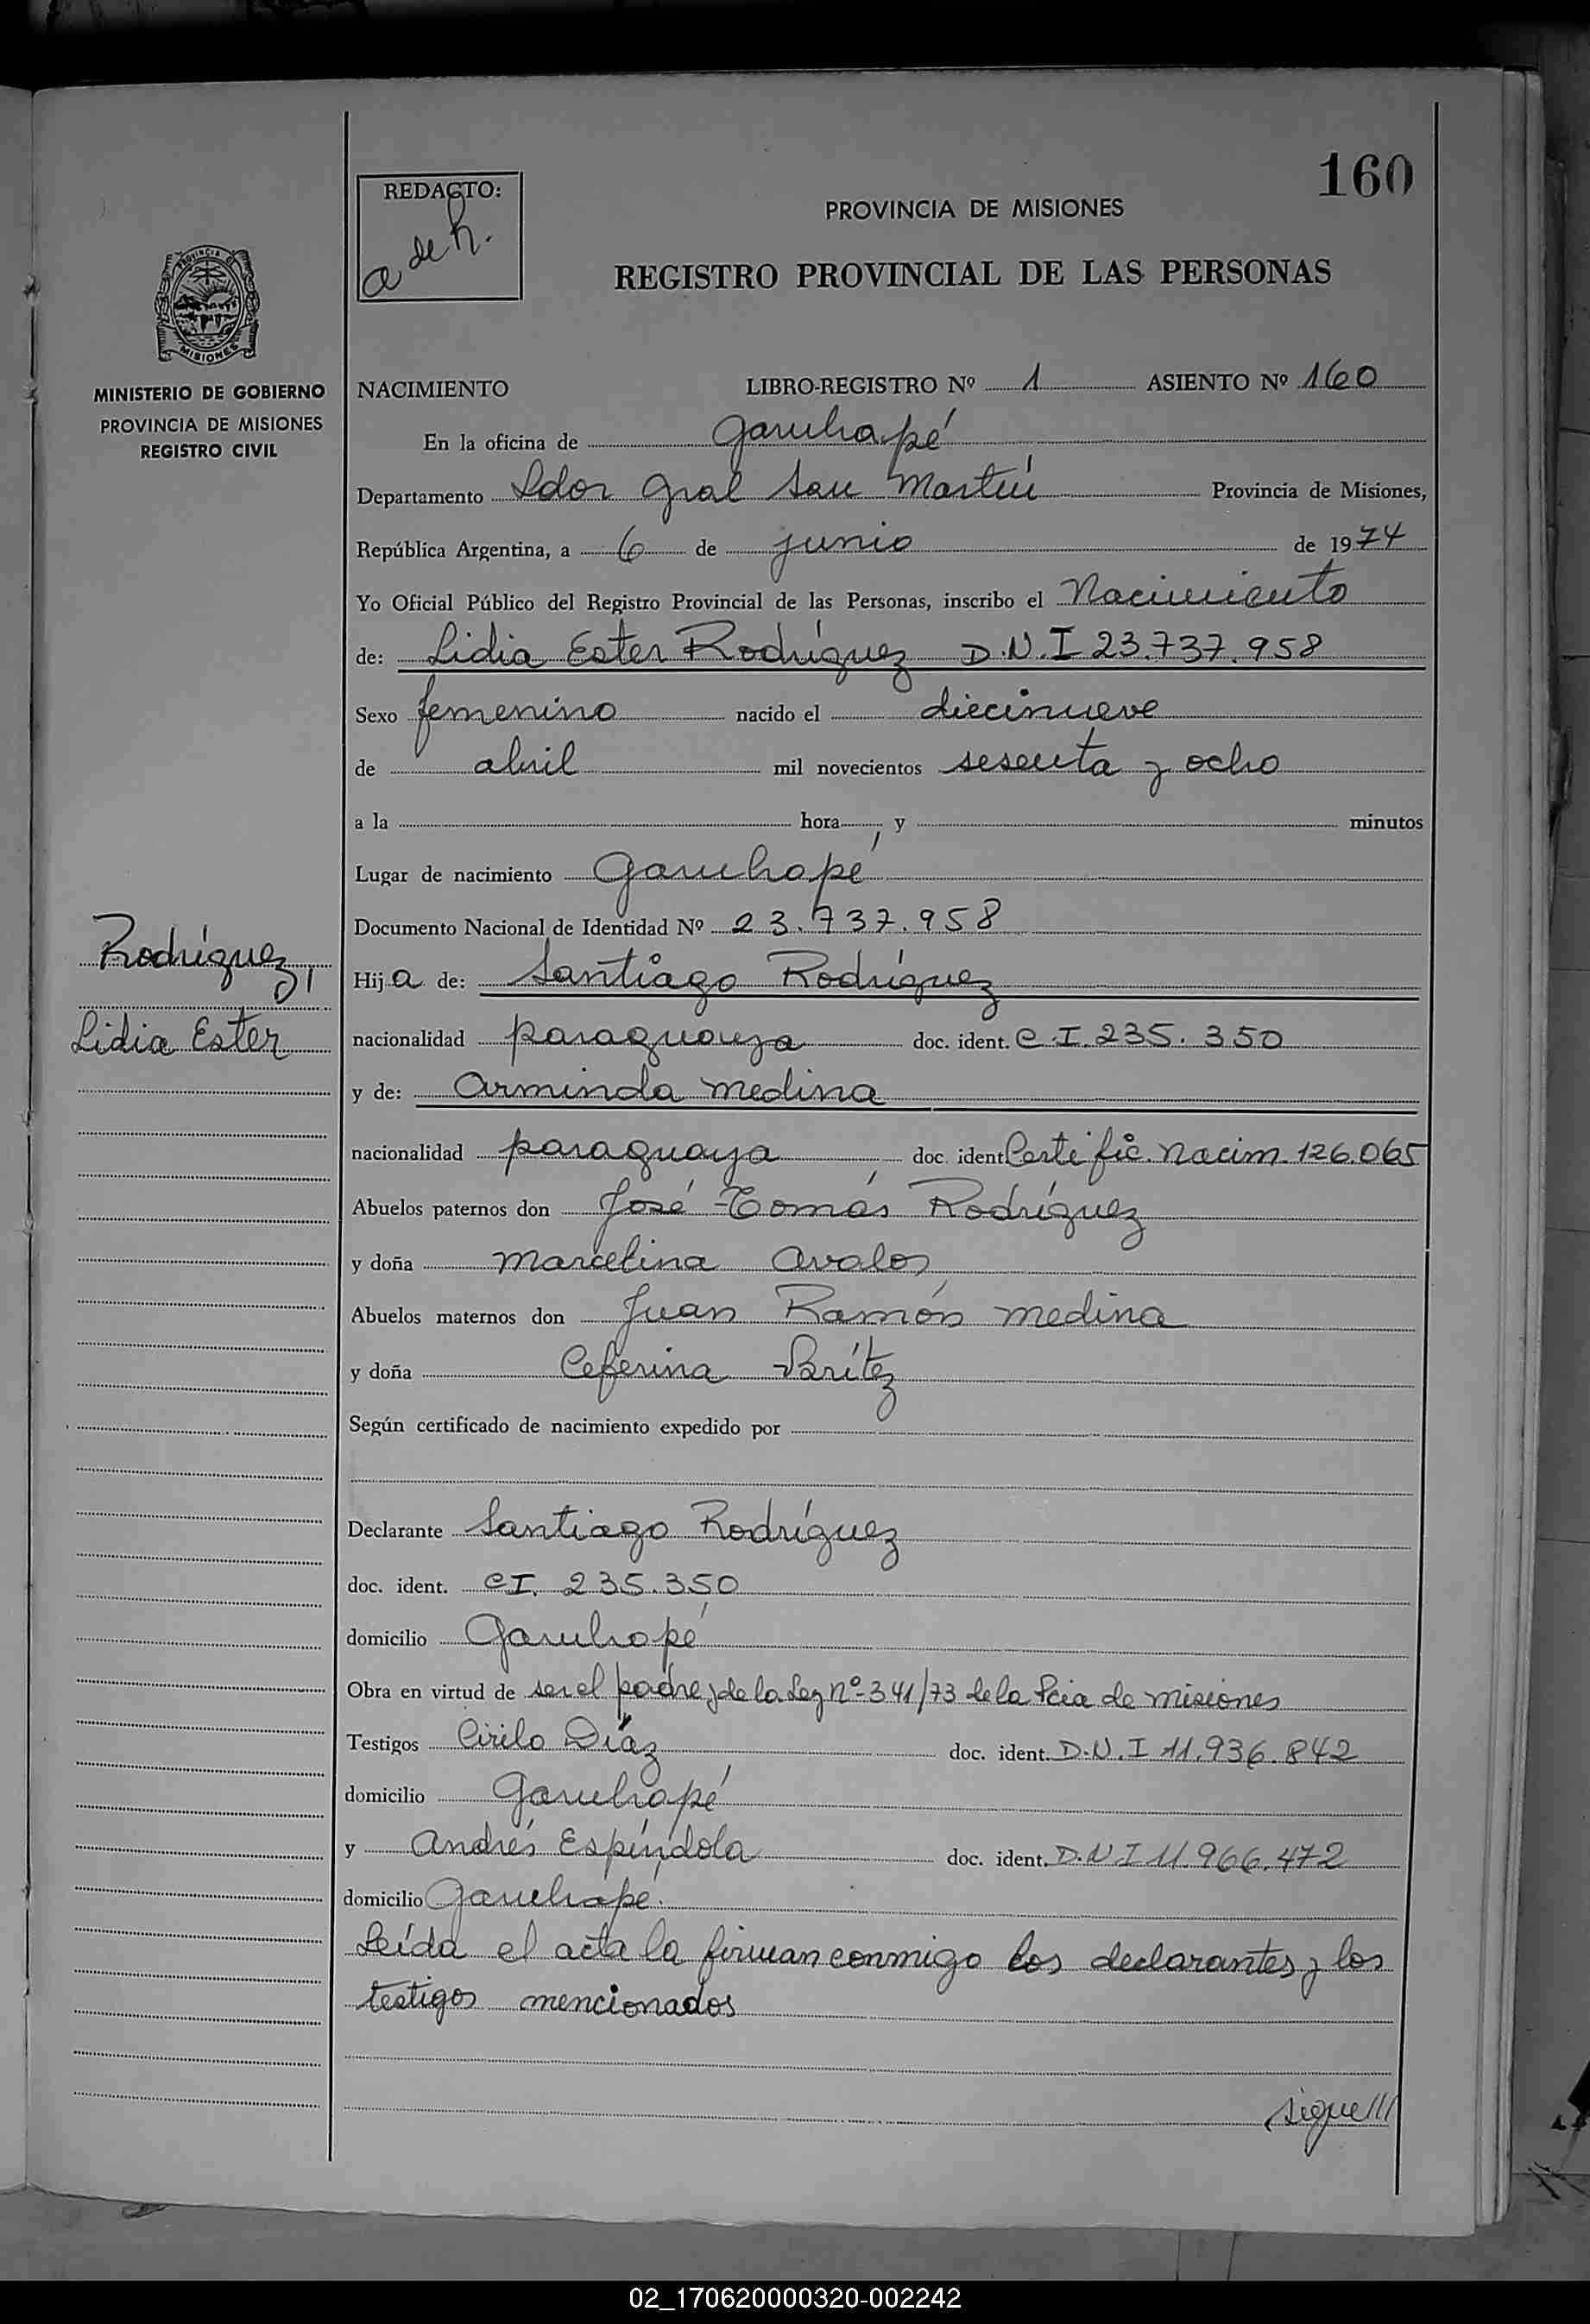 160
REDACTO:
a de h.
PROVINCIA DE MISIONES
REGISTRO PROVINCIAL DE LAS PERSONAS
PROVINCIA DE
MISIONES
MINISTERIO DE GOBIERNO
PROVINCIA DE MISIONES
REGISTRO CIVIL
NACIMIENTO LIBRO-REGISTRO Nº 1 ASIENTO Nº 160
En la oficina de Garuhapé
Departamento Ldor Gral San Martín Provincia de Misiones,
República Argentina, a 6 de junio de 1974
Yo Oficial Público del Registro Provincial de las Personas, inscribo el Nacimiento
de: Lidia Ester Rodríguez D.N.I 23.737.958
Sexo femenino nacido el diecinueve
de abril mil novecientos sesenta y ocho
a la hora y minutos
Lugar de nacimiento Garuhapé
Documento Nacional de Identidad Nº 23.737.958
Rodríguez,
Lidia Ester
Hija de: Santiago Rodríguez
nacionalidad paraguaya doc. ident. C.I. 235.350
y de: Arminda Medina
nacionalidad paraguaya doc. ident Certific. Nacim. 126.065
Abuelos paternos don José Tomás Rodríguez
y doña Marcelina Avalos
Abuelos maternos don Juan Ramón Medina
y doña Ceferina Brítez
Según certificado de nacimiento expedido por
Declarante Santiago Rodríguez
doc. ident. CI. 235.350
domicilio Garuhapé
Obra en virtud de ser el padre y de la Ley Nº 341/73 de la Pcia de Misiones
Testigos Cirilo Díaz doc. ident. D.N.I 11.936.842
domicilio Garuhapé
y Andrés Espíndola doc. ident. D.N I 11.966.472
domicilio Garuhapé.
Leída el acta la firman conmigo los declarantes y los
testigos mencionados
sigue///
02_170620000320-002242